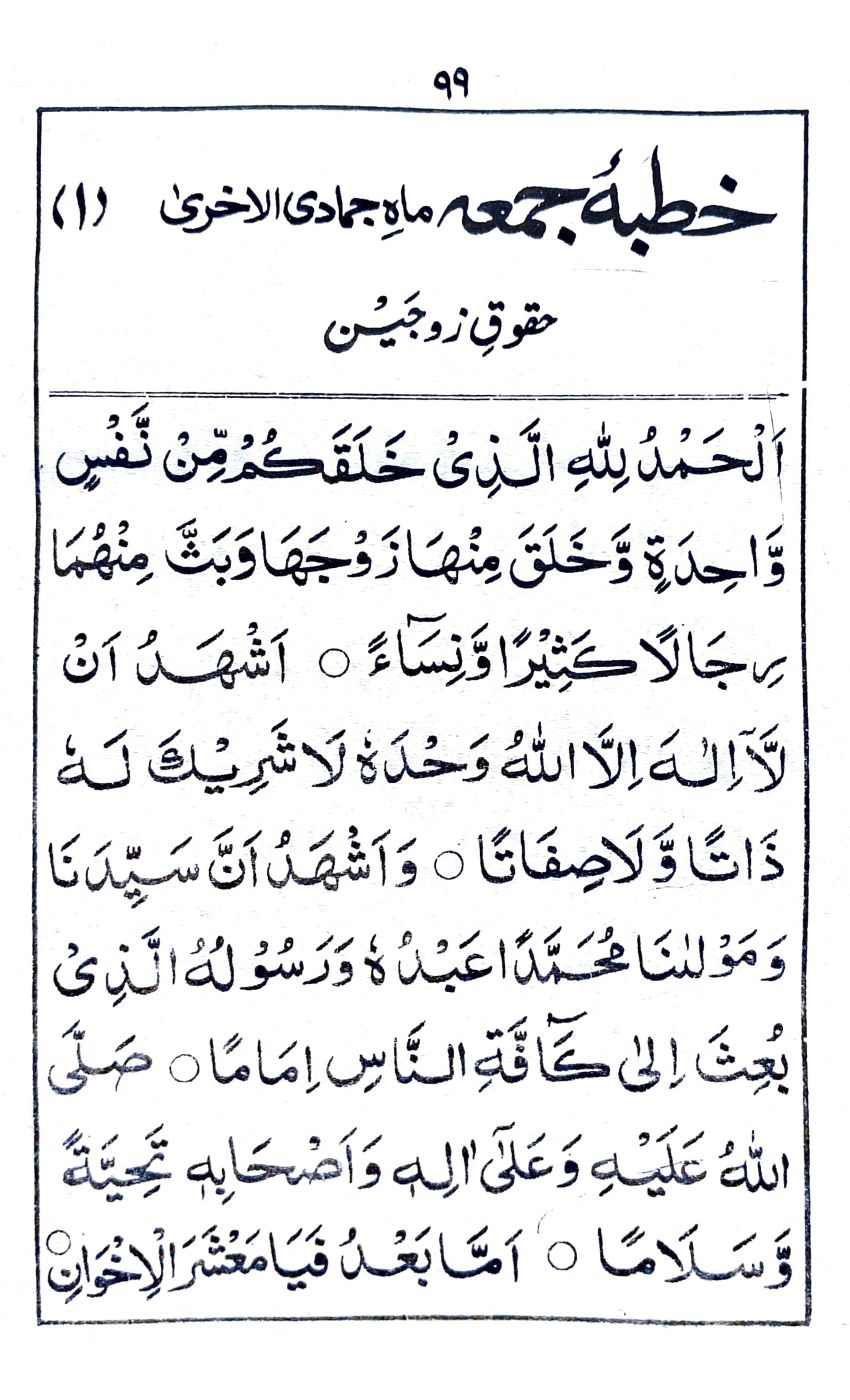 ۹۹
خطبۂ جمعہ ماہِ جمادی الاخریٰ (۱)
حقوقِ زوجَیْن
اَلْحَمْدُ لِلّٰهِ الَّذِیْ خَلَقَكُمْ مِّنْ نَّفْسٍ
وَّاحِدَةٍ وَّخَلَقَ مِنْهَا زَوْجَهَا وَبَثَّ مِنْهُمَا
رِجَالًا كَثِیْرًا وَّنِسَآءً ○ اَشْهَدُ اَنْ
لَّآ اِلٰهَ اِلَّا اللّٰهُ وَحْدَهٗ لَا شَرِیْكَ لَهٗ
ذَاتًا وَّلَا صِفَاتًا ○ وَاَشْهَدُ اَنَّ سَیِّدَنَا
وَمَوْلٰنَا مُحَمَّدًا عَبْدُهٗ وَرَسُوْلُهُ الَّذِیْ
بُعِثَ اِلٰی كَآفَّةِ النَّاسِ اِمَامًا ○ صَلَّی
اللّٰهُ عَلَیْهِ وَعَلٰٓی اٰلِهٖ وَاَصْحَابِهٖ تَحِیَّةً
وَّسَلَامًا ○ اَمَّا بَعْدُ فَیَا مَعْشَرَ الْاِخْوَانِ ○